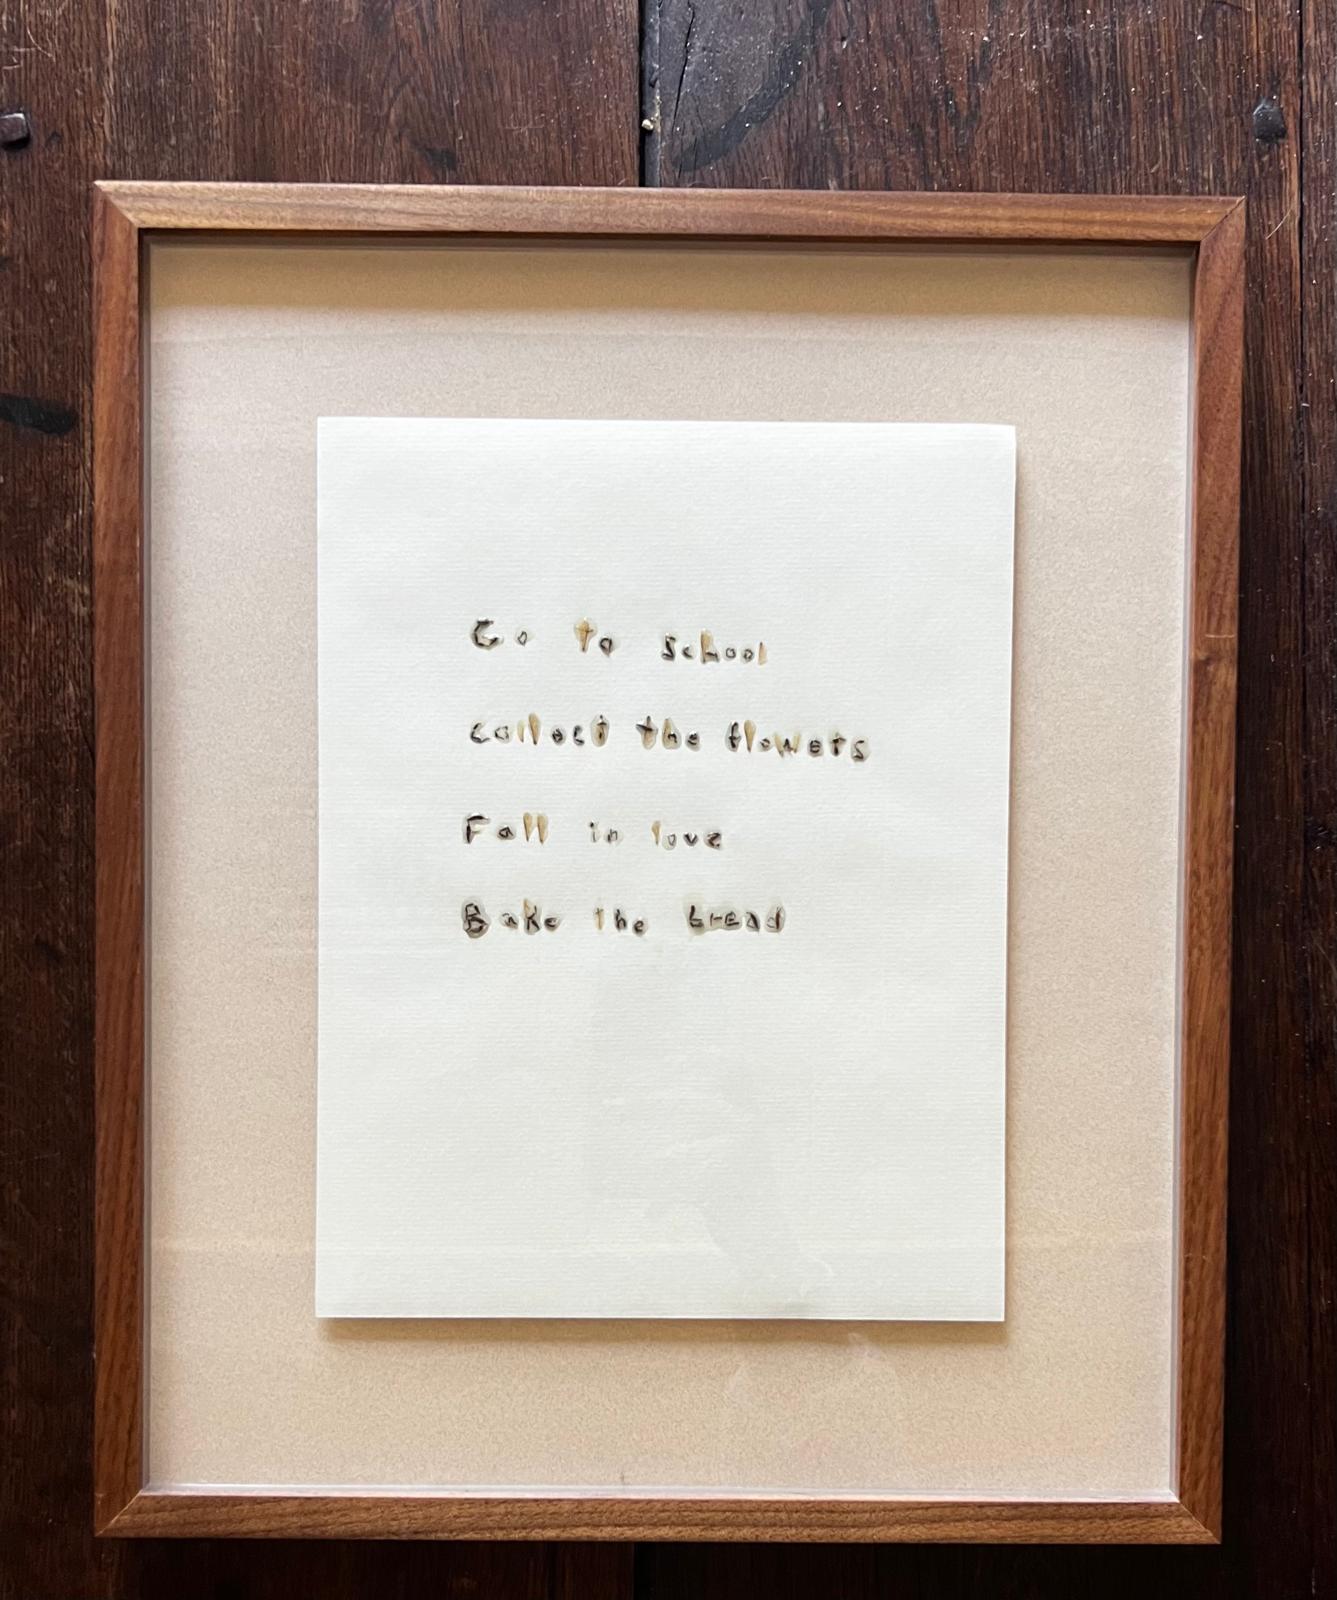 Go to school
collect the flowers
Fall in love
Bake the bread